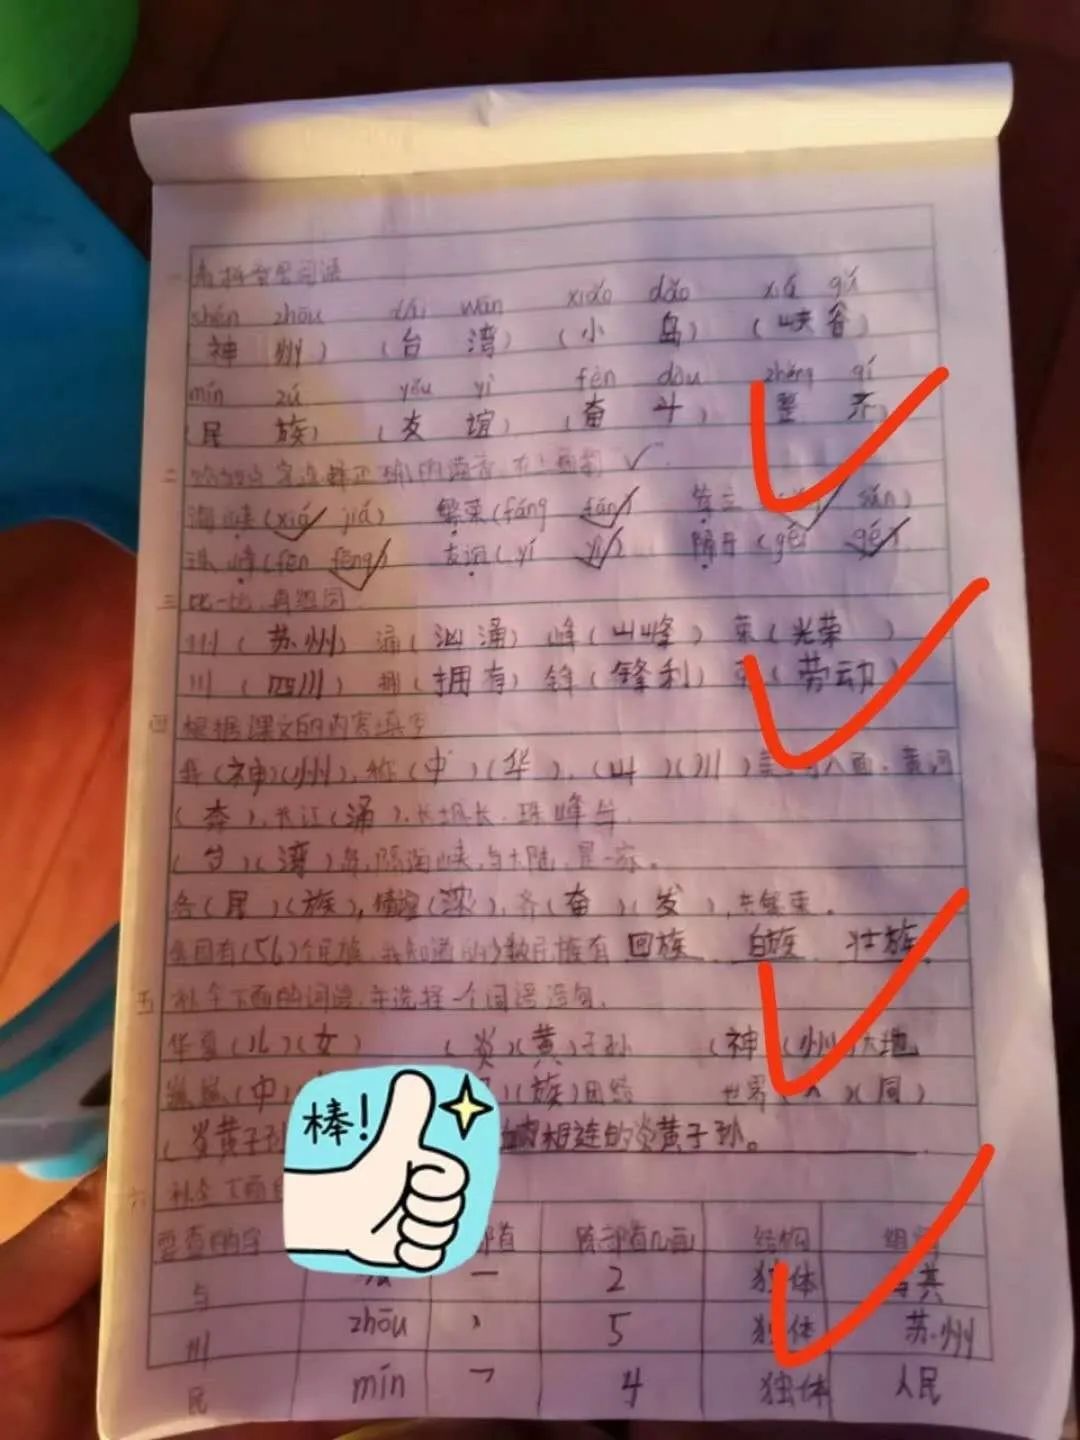 一 看拼音写词语
shén zhōu tái wān xiǎo dǎo xiá gǔ
(神 州) (台 湾) (小 岛) (峡谷)
mín zú yǒu yì fèn dòu zhěng qí
(民 族) (友 谊) (奋 斗) 整 齐
二 正确的读音
海峡(xiá jiá) 繁荣(fáng fán)
珠峰(fēn fēng) 友谊(yí yì) 隔
三 比一比,再组词
州(苏州) 涌(汹涌) 峰(山峰) 荣(光荣)
川(四川) 拥(拥有) 锋(锋利) 劳(劳动)
四 根据课文的内容填字
我(神)(州),称(中)(华),(山)(川)美 入画,黄河
(奔),长江(涌),长城长,珠峰
(台)(湾)岛,隔海峡,与大陆,是一家。
各(民)(族),情谊(深),齐(奋)(发),共繁荣。
我国有(56)个民族,我知道的少数民族有 回族、白族、壮族。
五 补全下面的词语,并选择一个词语造句。
华夏(儿)(女) (炎)(黄)子孙 (神)(州)大地
巍巍(中) (族)团结 世界 (同)
(炎黄子孙 相连的炎黄子孙。
六 补全下面
要查的字 部首 除部首几画 结构 组词
与 一 2 独体 与共
州 zhōu 丶 5 独体 苏州
民 mín 乛 4 独体 人民
棒!